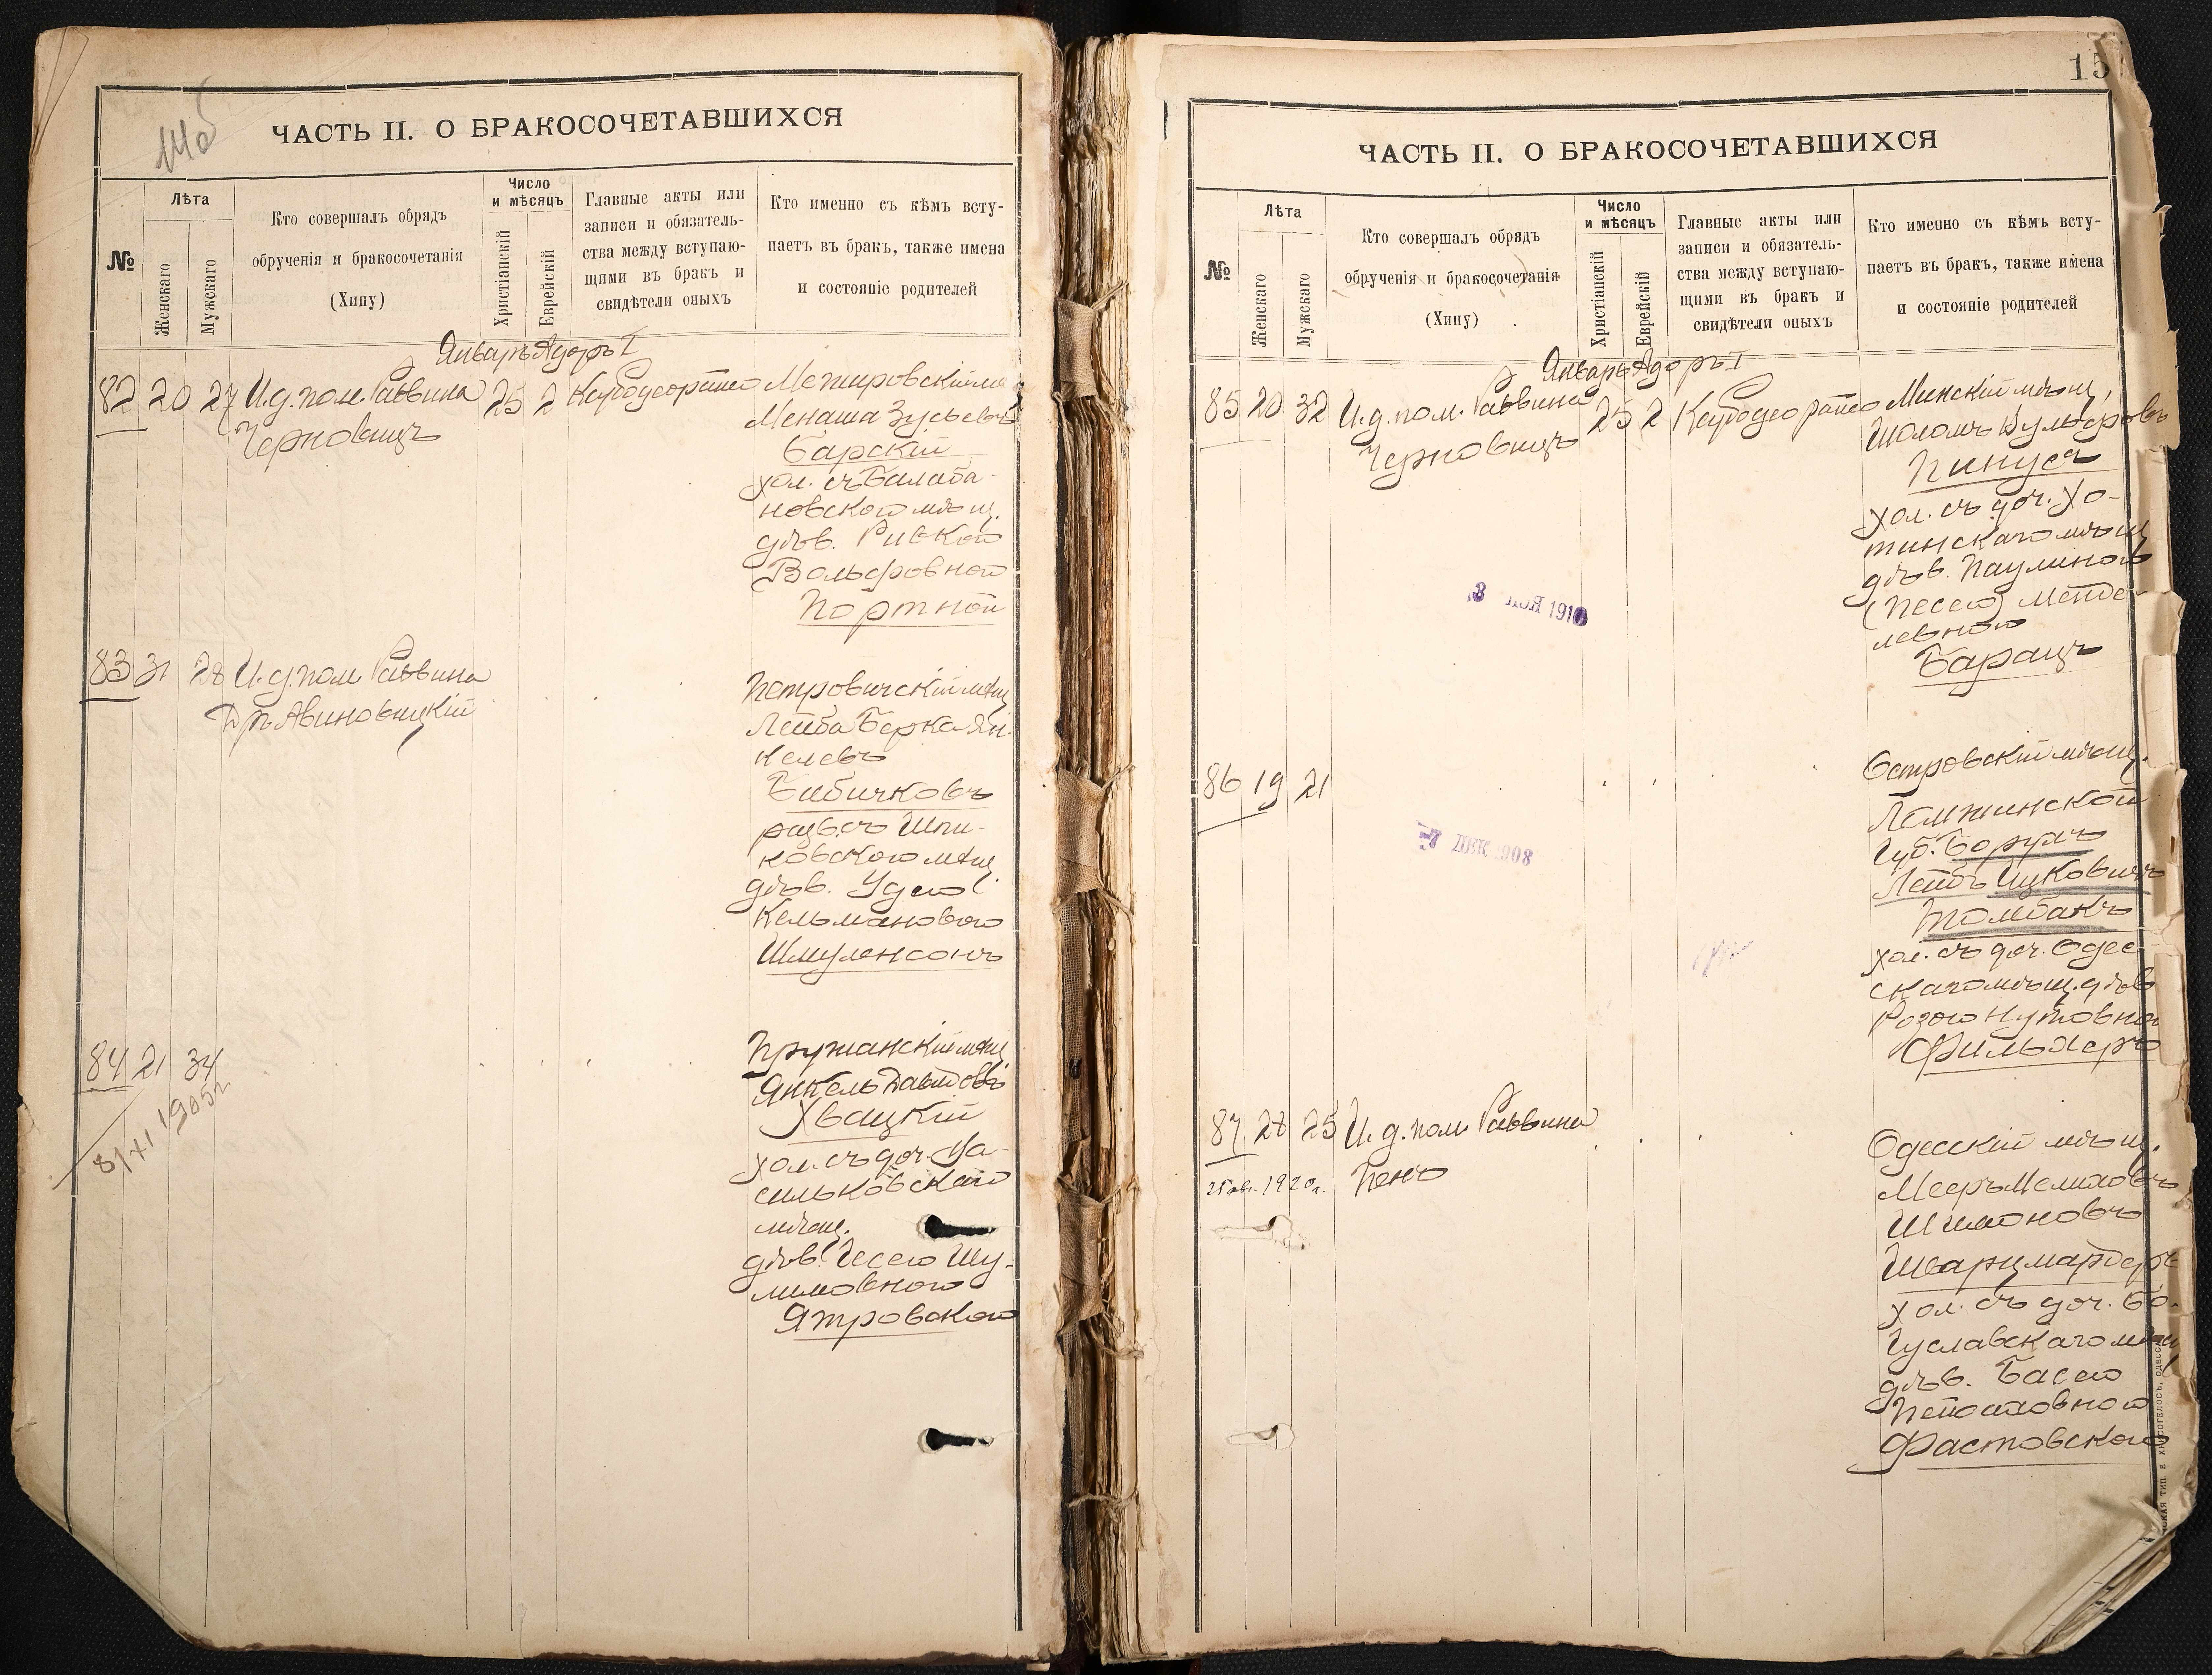 14об
ЧАСТЬ II. О БРАКОСОЧЕТАВШИХСЯ
№
Лѣта
Женскаго
Мужскаго
Кто совершалъ обрядъ
обрученія и бракосочетанія
(Хипу)
Число
и мѣсяцъ
Христіанскій
Еврейскій
Главные акты или
записи и обязатель-
ства между вступаю-
щими въ бракъ и
свидѣтели оныхъ
Кто именно съ кѣмъ всту-
паетъ въ бракъ, также имена
и состояніе родителей
Январь Адоръ I
82 20 27 И. д. пом. Раввина 25 2
Черновицъ
Межировскій
Менаша Зусьевъ
Барскій
хол. съ Балаба-
новского мѣщ.
дѣв. Ривкой
Вольфровной
Портной
83 31 28 И. д. пом Раввина
Дръ Авиновицкій
Петровичскій мѣщ
Лейба Берка Ян-
келевъ
Бибичковъ
разв. съ Шпи-
ковского мѣщ.
дѣв. Удею
Кельмановою
Шмуленсонъ
84 21 34
8/XI 1905г
Пружанскій мѣщ
Янкель Давидовъ
Хвацкій
хол. съ доч. Ва-
сильковскаго
мѣщ.
дѣв. Несею Шу-
лимовною
Ятровскою
15
ЧАСТЬ II. О БРАКОСОЧЕТАВШИХСЯ
№
Лѣта
Женскаго
Мужскаго
Кто совершалъ обрядъ
обрученія и бракосочетанія
(Хипу)
Число
и мѣсяцъ
Христіанскій
Еврейскій
Главные акты или
записи и обязатель-
ства между вступаю-
щими въ бракъ и
свидѣтели оныхъ
Кто именно съ кѣмъ всту-
паетъ въ бракъ, также имена
и состояніе родителей
Январь Адоръ I
85 20 32 И. д. пом. Раввина 25 2
Черновицъ
Минскій мѣщ,
Шоломъ Вульфровъ
Пинусъ
хол. съ доч. Хо-
тинскаго мѣщ
дѣв. Паулиною
(Песею) Менде-
левною
Барацъ
1910
86 19 21
7 ДЕК 1908
Островскій мѣщ.
Ломжинской
Губ. Борухъ
Лейбъ Ицковичъ
Томбакъ
хол. съ доч. Одес-
скаго мѣщ. дѣв
Розою Нутовною
Фильхеръ
87 28 25 И. д. пом. Раввина
Пенъ
1920г.
Одесскій мѣщ.
Мееръ Мелиховъ
Шимоновъ
Шварцмардеръ
хол. съ доч. Бо-
гуславскаго мѣщ
дѣв. Басею
Пейсаховною
Фастовскою